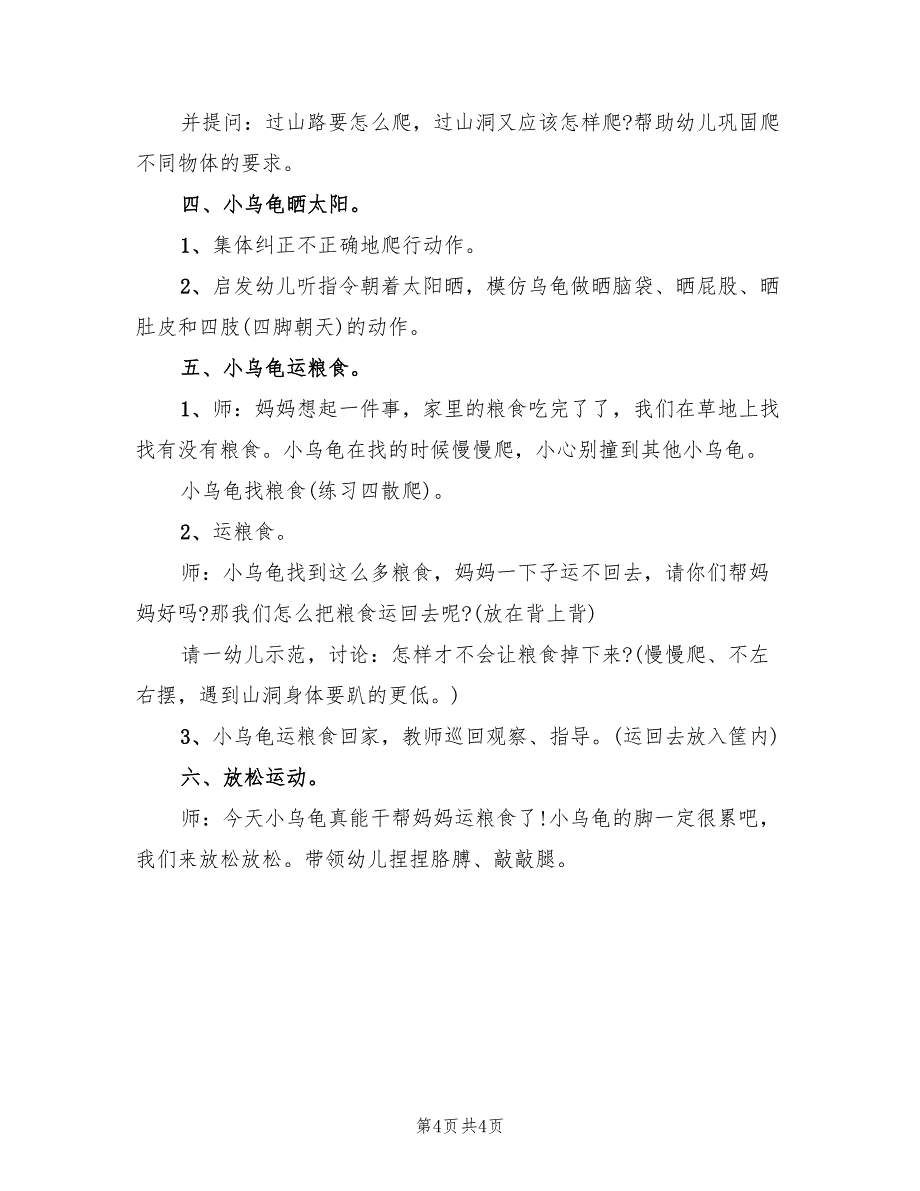 并提问：过山路要怎么爬，过山洞又应该怎样爬?帮助幼儿巩固爬
不同物体的要求。
四、小乌龟晒太阳。
1、集体纠正不正确地爬行动作。
2、启发幼儿听指令朝着太阳晒，模仿乌龟做晒脑袋、晒屁股、晒
肚皮和四肢(四脚朝天)的动作。
五、小乌龟运粮食。
1、师：妈妈想起一件事，家里的粮食吃完了了，我们在草地上找
找有没有粮食。小乌龟在找的时候慢慢爬，小心别撞到其他小乌龟。
小乌龟找粮食(练习四散爬)。
2、运粮食。
师：小乌龟找到这么多粮食，妈妈一下子运不回去，请你们帮妈
妈好吗?那我们怎么把粮食运回去呢?(放在背上背)
请一幼儿示范，讨论：怎样才不会让粮食掉下来?(慢慢爬、不左
右摆，遇到山洞身体要趴的更低。)
3、小乌龟运粮食回家，教师巡回观察、指导。(运回去放入筐内)
六、放松运动。
师：今天小乌龟真能干帮妈妈运粮食了!小乌龟的脚一定很累吧，
我们来放松放松。带领幼儿捏捏胳膊、敲敲腿。
第4页 共4页